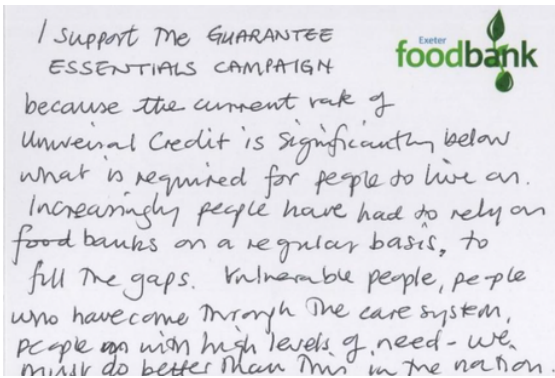 I support the GUARANTEE
ESSENTIALS CAMPAIGN
Exeter
foodbank
because the current rate of
Universal Credit is significantly below
what is required for people to live on.
Increasingly people have had to rely on
food banks on a regular basis, to
fill the gaps. Vulnerable people, people
who have come through the care system,
people with high levels of need - we
must do better than this in the nation.